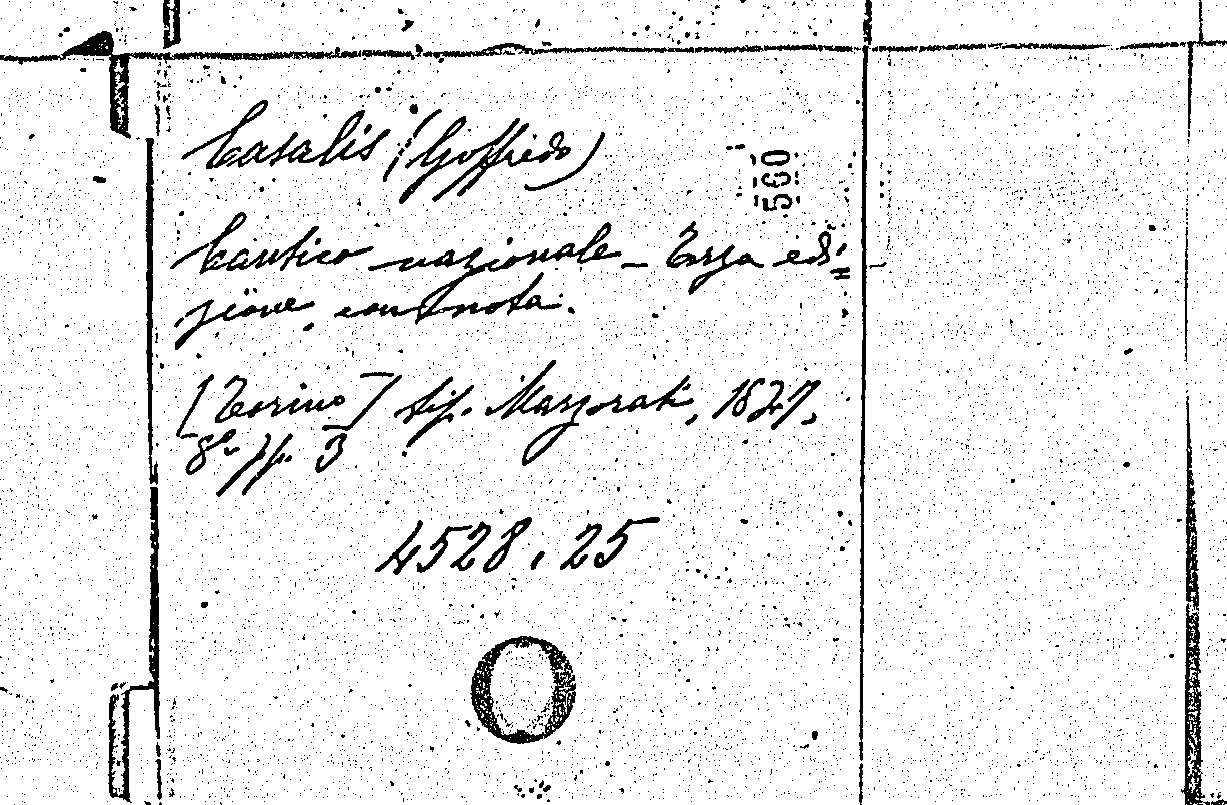 Casalis (Goffredo)
560
Cantico nazionale - Terza edi=
zione con nota.
[Torino] tip. Marzorati, 1827,
8º pp. 3
4528.25